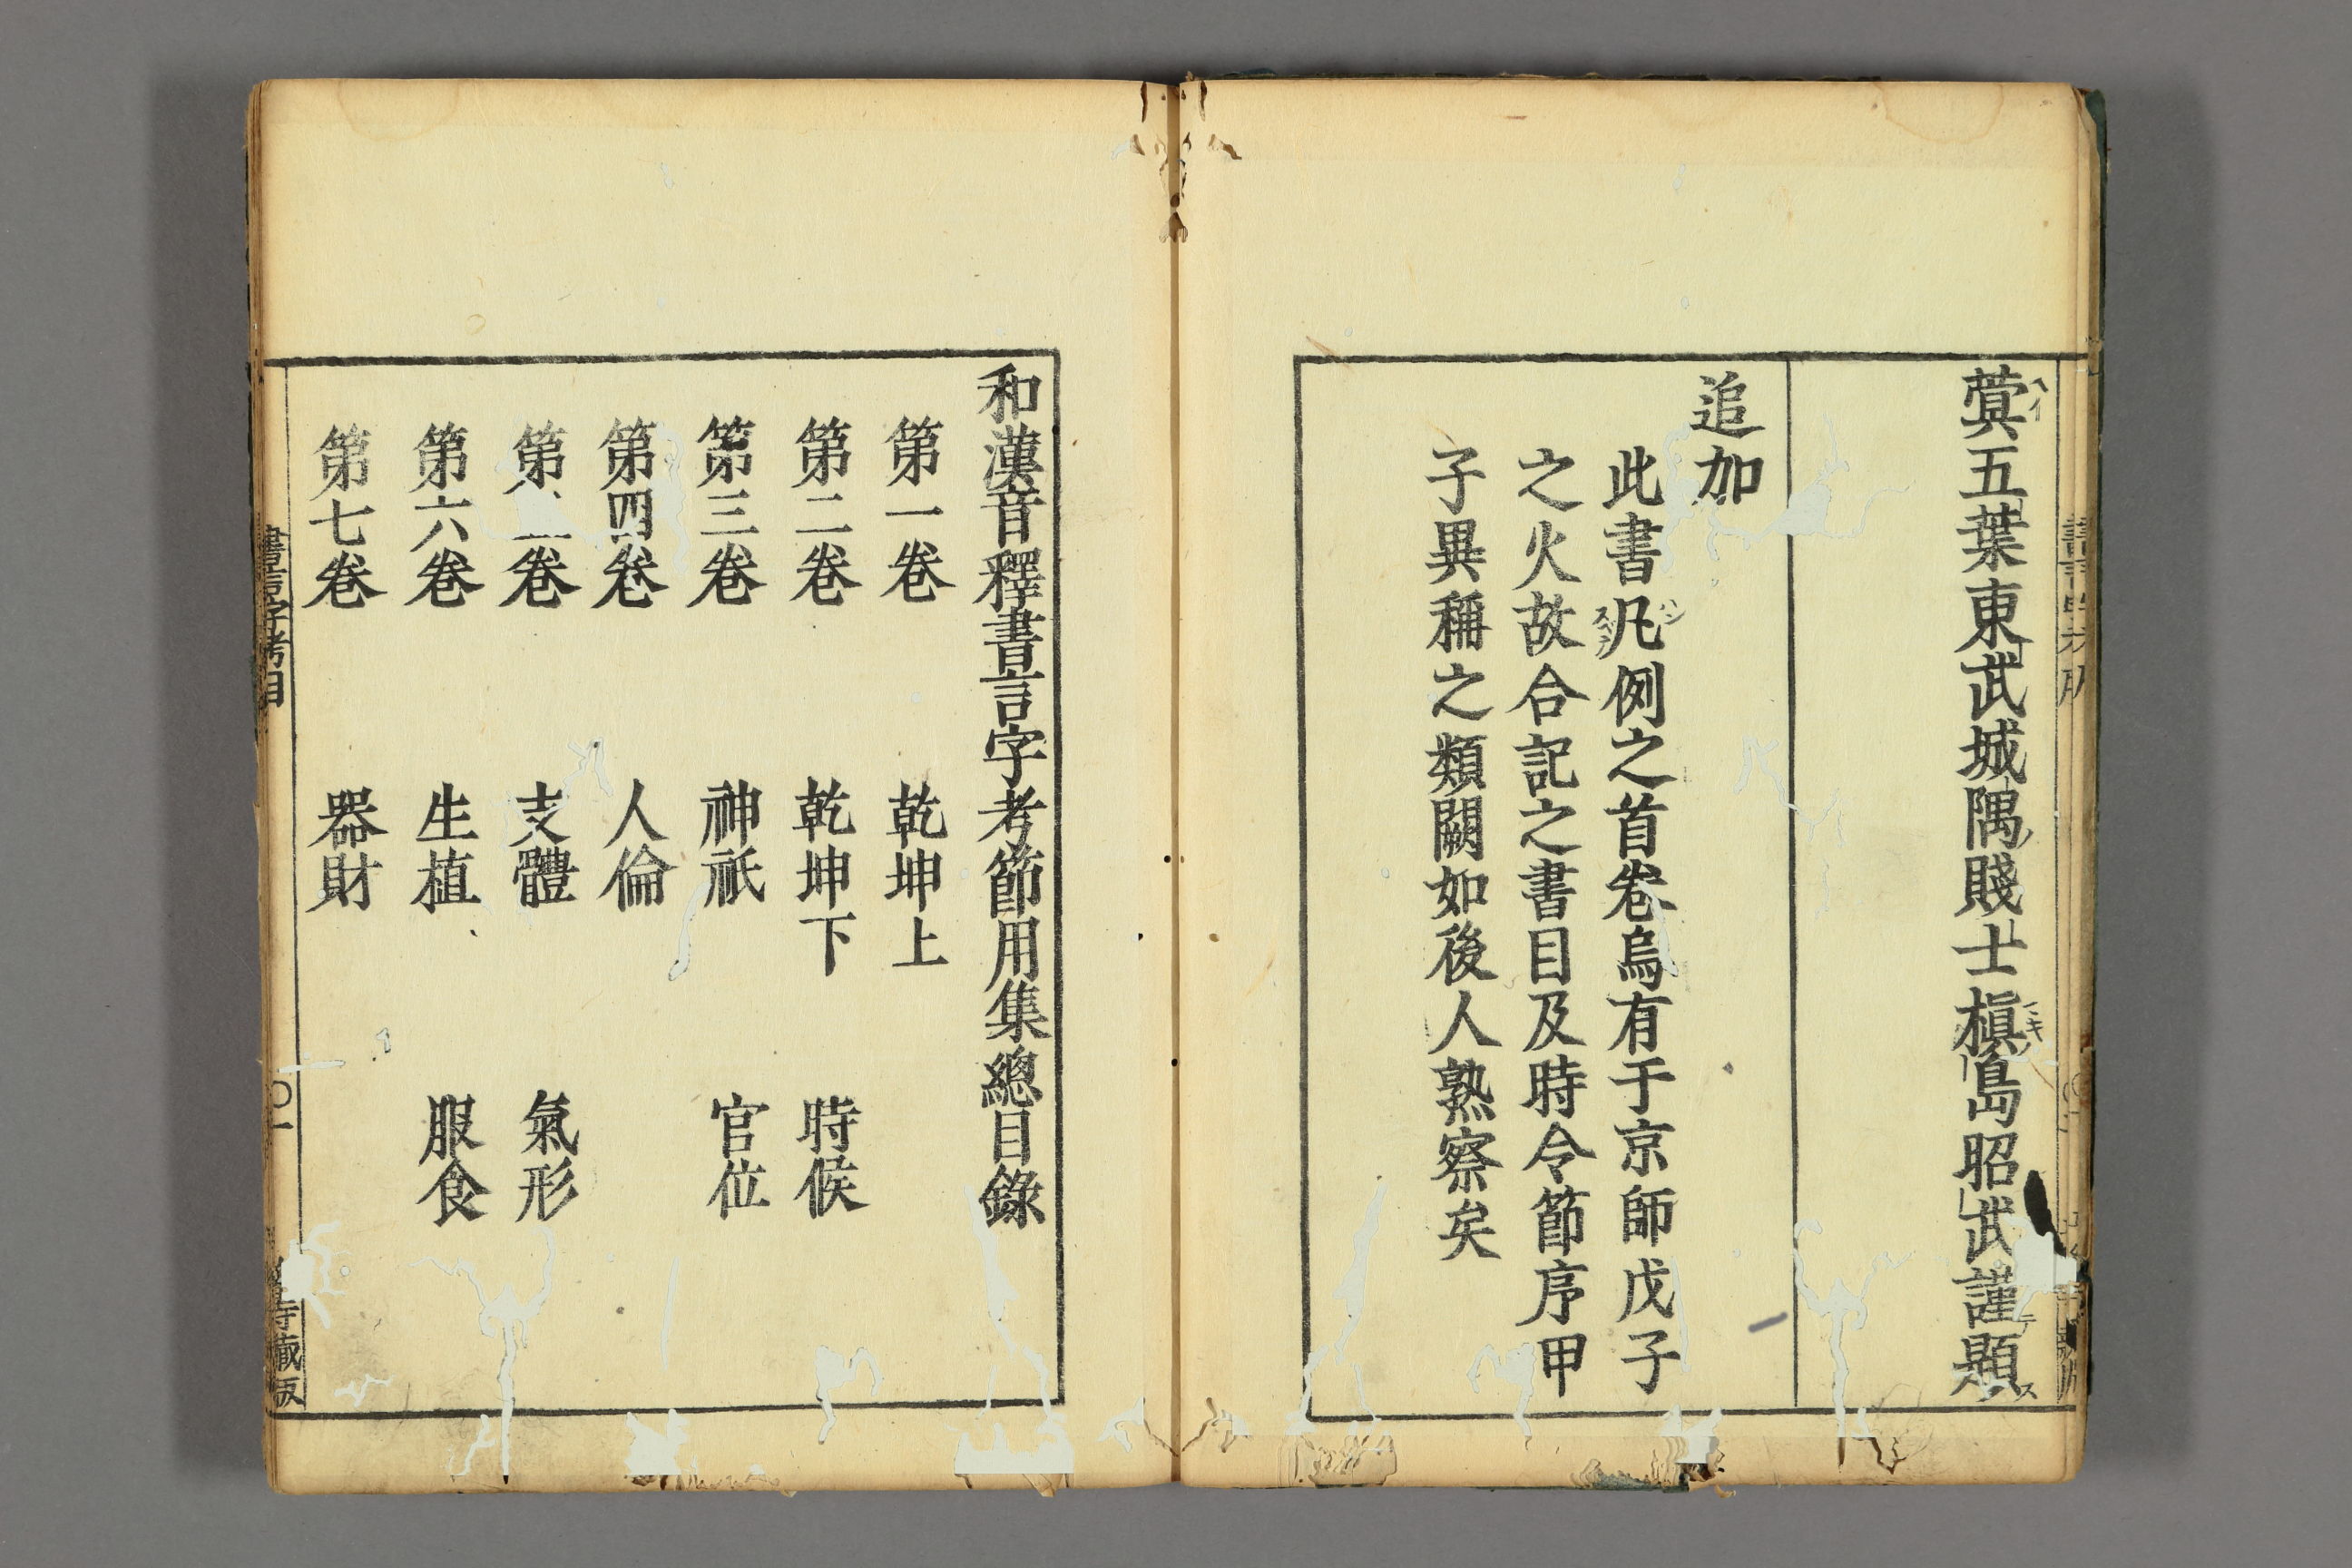 蓂五葉東武城隅賤士槇島昭武謹題
追加
此書凡例之首卷烏有于京師戊子
之火故合記之書目及時令節序甲
子異稱之類闕如後人熟察矣
和漢音釋書言字考節用集總目錄
第一卷 乾坤上
第二卷 乾坤下 時候
第三卷 神祇 官位
第四卷 人倫
第 卷 支體 氣形
第六卷 生植 服食
第七卷 器財
書言字考目 〇一 寺藏版